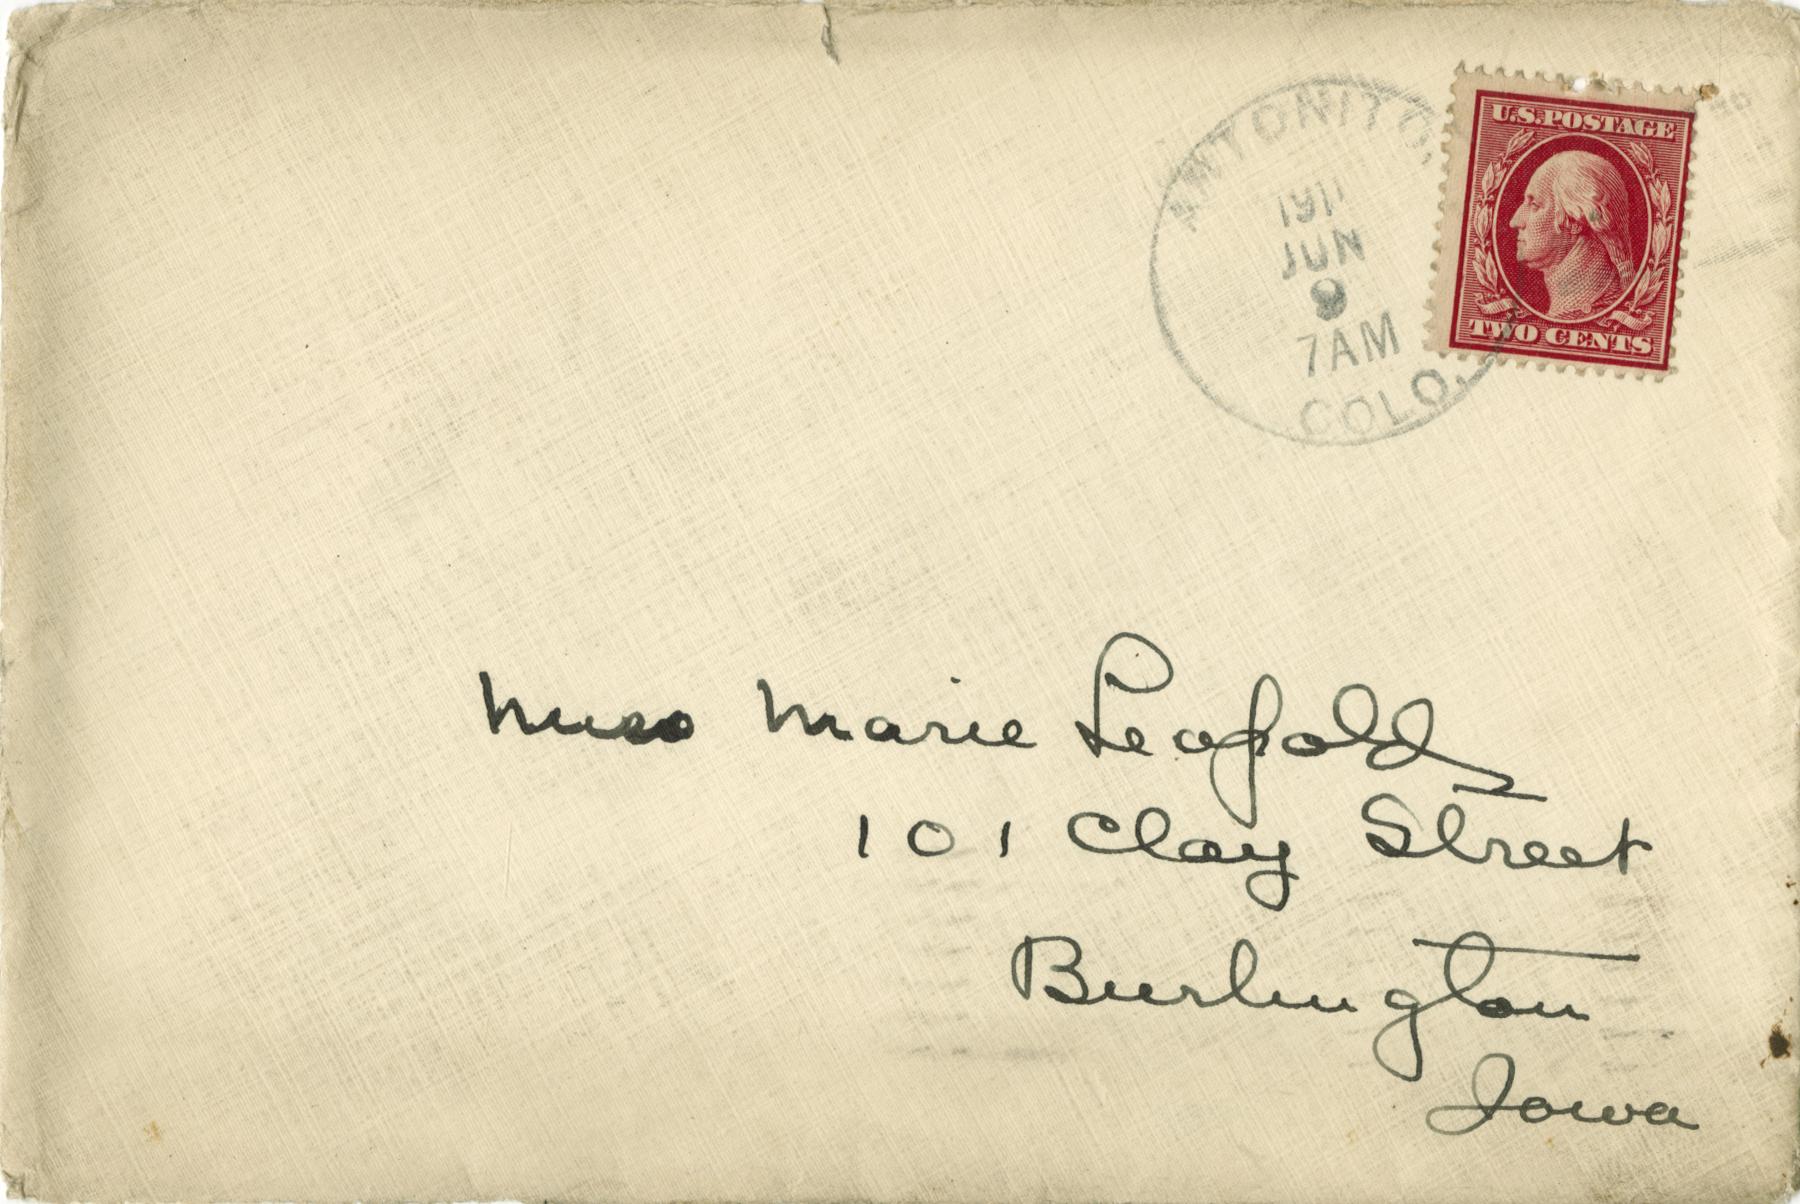 ANTONITO,
1911
JUN
9
7AM
COLO.
U.S. POSTAGE
TWO CENTS
Miss Marie Leopold
101 Clay Street
Burlington
Iowa